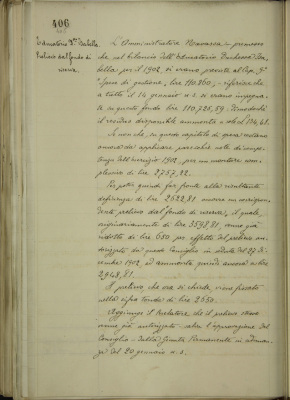 406
Educatorio Dssa Isabella.
Prelievo dal fondo di
riserva.
L'Amministratore Ravasco premesso
che nel bilancio dell'Educatorio Duchessa Isa-
bella per il 1902, si erano previste al Cap. 5°
"Spese di gestione" lire 110.360; - riferisce che
a tutto il 14 gennaio u. s. si erano impegna-
te su questo fondo lire 110,225,59. Dimodochè
il residuo disponibile ammonta a sole L. 134,41.
Se non che, su questo capitolo di spesa restano
ancora da applicare parecchie note di compe-
tenza dell'esercizio 1902, per un montare com-
plessivo di lire 2757,22.
Per poter quindi far fronte alla risultante
deficienza di lire 2622,81 occorre un corrispon-
dente prelievo dal fondo di riserva, il quale,
originariamente di lire 3598,81, venne già
ridotto di lire 650 per effetto del prelievo au-
torizzato da questo Consiglio in seduta del 29 di-
cembre 1902, ed ammonta perciò ancora a lire
2948,81.
Il prelievo, che ora si chiede, viene fissato
nella cifra tonda di lire 2650.
Aggiunge il Relatore, che il prelievo stesso
venne già autorizzato - salva l'approvazione del
Consiglio - dalla Giunta Permanente in adunan-
za del 20 gennaio u. s.